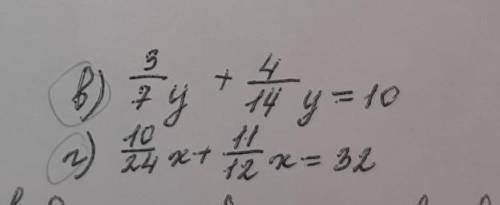 в) 3/7 y + 4/14 y = 10
г) 10/24 x + 11/12 x = 32